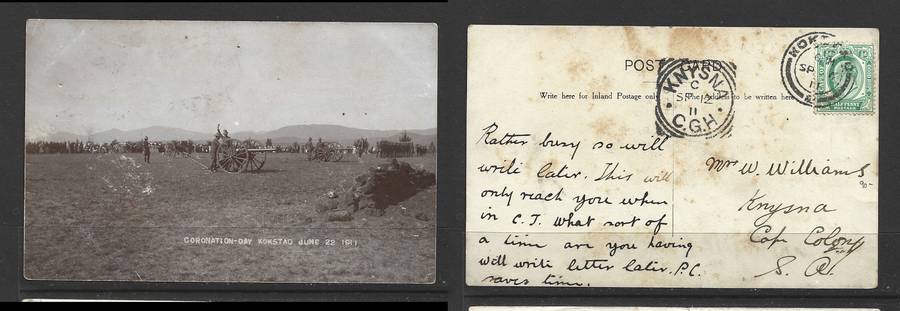 CORONATION-DAY KOKSTAD JUNE 22 1911
POST CARD
Write here for Inland Postage only
The Address to be written here
KNYSNA
C
SP 12
11
C.G.H.
KOKSTAD
SP
11
HALFPENNY
POSTAGE
Rather busy so will
write later. This will
only reach you when
in C. T. What sort of
a time are you having
Will write letter later. P.C.
saves time.
Mrs W. Williams
Knysna
Cape Colony
S. A.